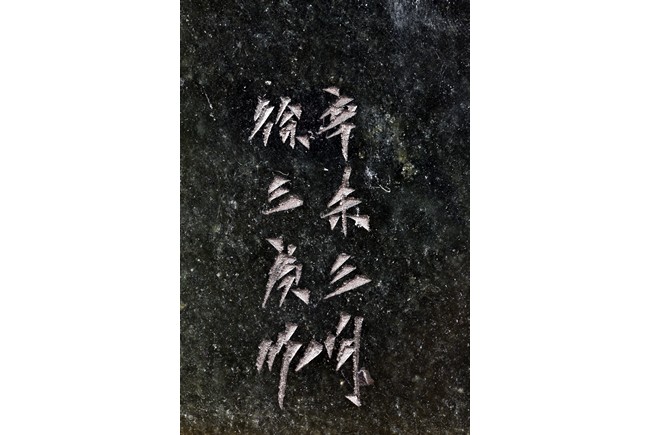 辛未三月
徐三庚作